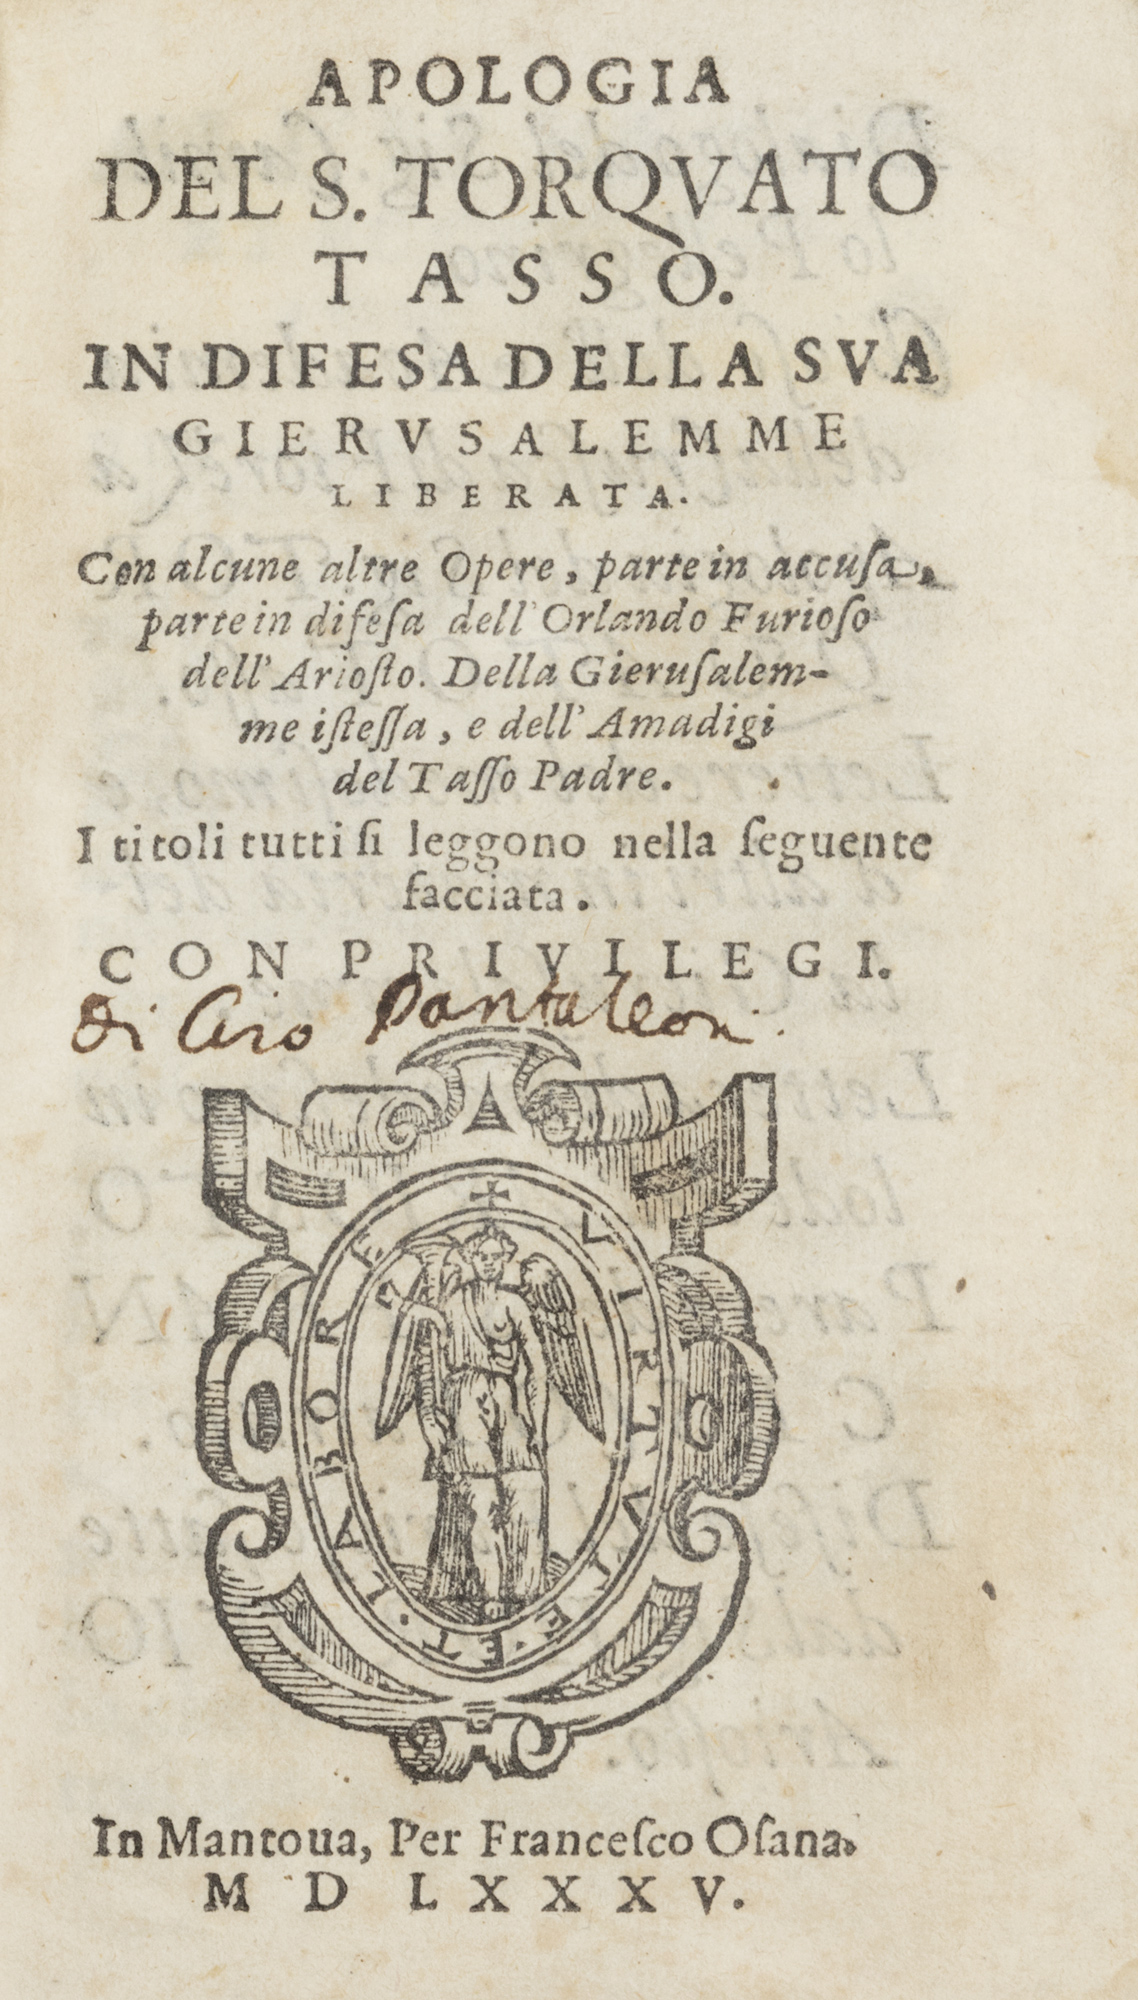 APOLOGIA
DEL S. TORQVATO
TASSO.
IN DIFESA DELLA SVA
GIERVSALEMME
LIBERATA.
Con alcune altre Opere, parte in accuſa,
parte in difeſa dell'Orlando Furioſo
dell'Arioſto. Della Gieruſalem-
me iſteſſa, e dell'Amadigi
del Taſſo Padre.
I titoli tutti ſi leggono nella ſeguente
facciata.
CON PRIVILEGI.
Di Ciro Pantaleoni.
VIRTVTE. ET. LABORE
In Mantoua, Per Franceſco Oſana.
MDLXXXV.